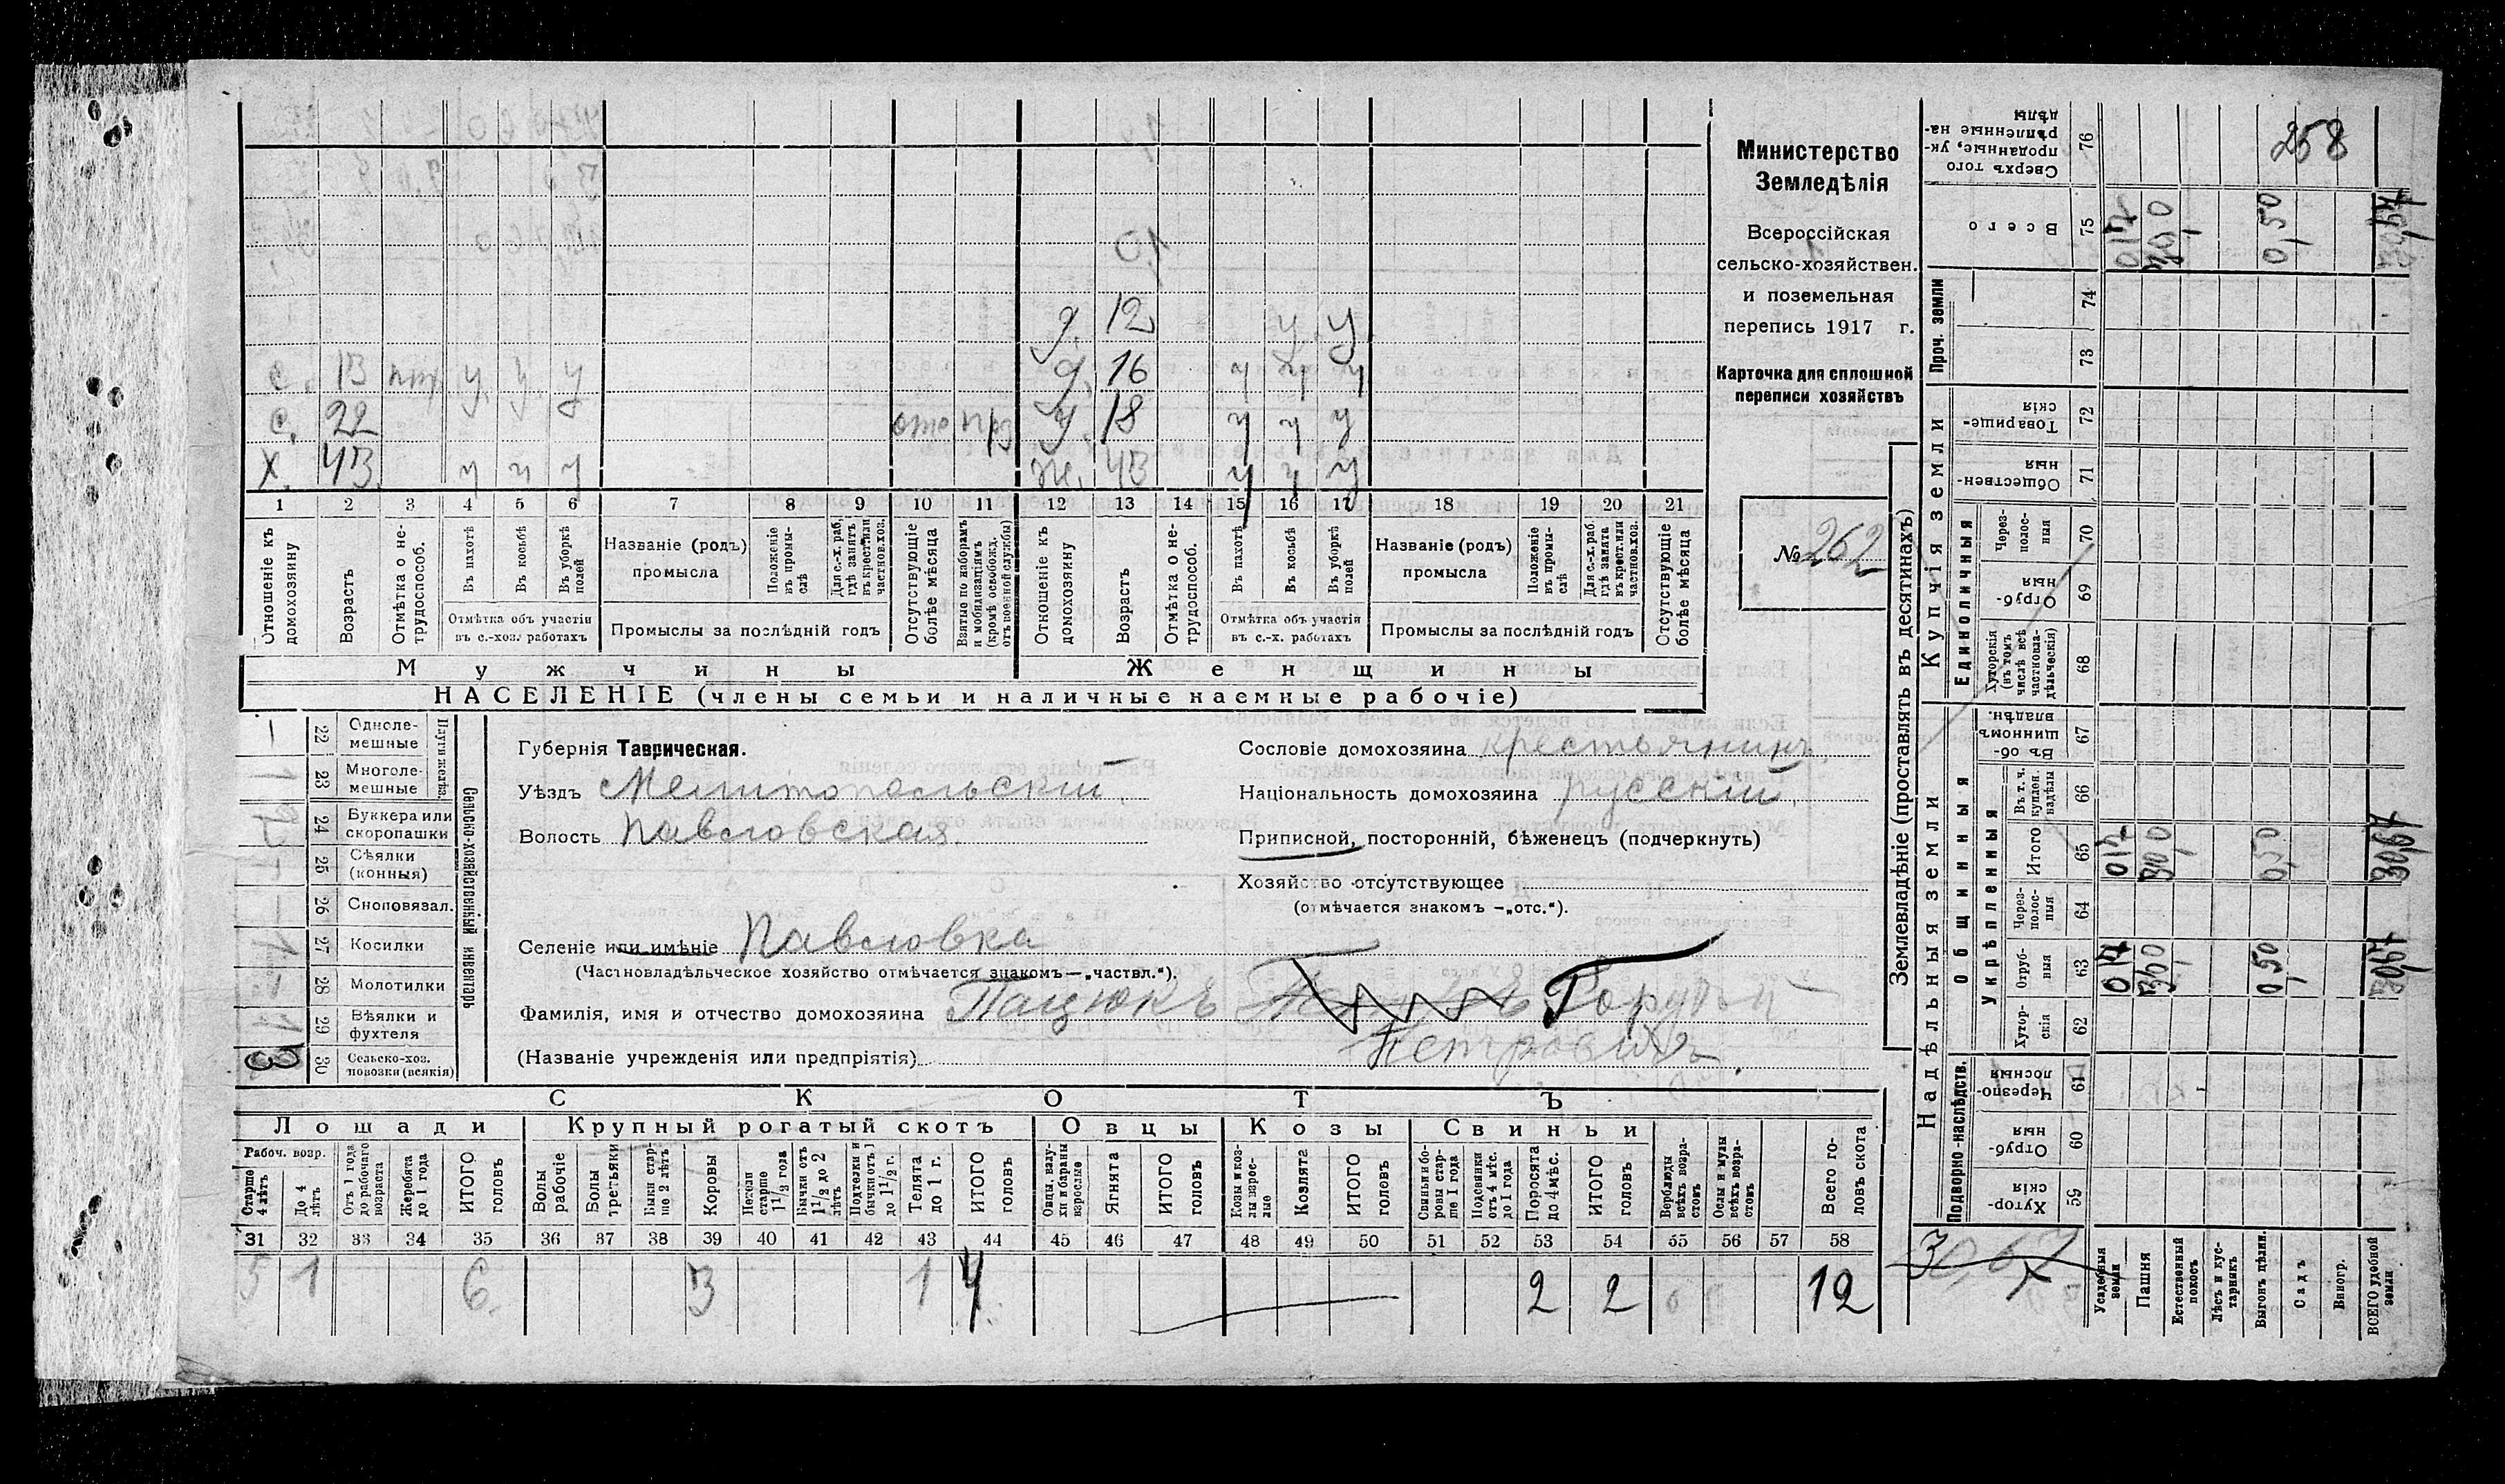 Министерство
Земледѣлія
Всероссійская
сельско-хозяйствен.
и поземельная
перепись 1917 г.
Карточка для сплошной
переписи хозяйствъ
№ 262
д. 12 у у
с. 13 у. у. у д. 16 у у у
с. 22 д 18 у у у
Х. 43 у у у ж. 43 у у у
1 2 3 4 5 6 7 8 9 10 11 12 13 14 15 16 17 18 19 20 21
Отношеніе къ домохозяину
Возрастъ
Отмѣтка о не-трудоспособ.
Въ пахотѣ
Въ косьбѣ
Въ уборкѣ полей
Отмѣтка объ участіи въ с.-хоз. работахъ
Названіе (родъ) промысла
Положеніе въ промы-слѣ
Для с.-х. раб. гдѣ занятъ въ крест. или частнов. хоз.
Промыслы за послѣдній годъ
Отсутствующіе болѣе мѣсяца
Взятые по наборамъ и мобилизаціямъ (кромѣ освобожд. отъ военной службы)
Отношеніе къ домохозяину
Возрастъ
Отмѣтка о не-трудоспособ.
Въ пахотѣ
Въ косьбѣ
Въ уборкѣ полей
Отмѣтка объ участіи въ с.-х. работахъ
Названіе (родъ) промысла
Положеніе въ промы-слѣ
Для с.-х. раб. гдѣ занята въ крест. или частнов. хоз.
Промыслы за послѣдній годъ
Отсутствующіе болѣе мѣсяца
Мужчины Женщины
НАСЕЛЕНІЕ (члены семьи и наличные наемные рабочіе)
Сельско-хозяйственный инвентарь
Плуги желѣз.
22 Одноле-мешные
23 Многоле-мешные
24 Буккера или скоропашки
25 Сѣялки (конныя)
26 Сноповязал.
27 Косилки
28 Молотилки
29 Вѣялки и фухтеля
30 Сельско-хоз. повозки (всякія) 3
Губернія Таврическая.
Уѣздъ Мелитопольскій.
Волость Павловская.
Селеніе или имѣніе Павловка
(Частновладѣльческое хозяйство отмѣчается знакомъ—„частвл.“).
Фамилія, имя и отчество домохозяина Пацюкъ
Петровичъ.
(Названіе учрежденія или предпріятія)
Сословіе домохозяина крестьянинъ
Національность домохозяина русскій.
Приписной, посторонній, бѣженецъ (подчеркнуть)
Хозяйство отсутствующее
(отмѣчается знакомъ —„отс.“).
СКОТЪ
Лошади Крупный рогатый скотъ Овцы Козы Свиньи
Рабоч. возр.
Старше 4 лѣтъ
До 4 лѣтъ
Отъ 1 года до рабочаго возраста
Жеребята до 1 года
ИТОГО головъ
Волы рабочіе
Волы третьяки
Быки стар-ше 2 лѣтъ
Коровы
Нетели старше 1 1/2 года
Бычки отъ 1 1/2 до 2 лѣтъ
Подтелки и бычки отъ 1 до 1 1/2 г.
Телята до 1 г.
ИТОГО головъ
Овцы, валу-хи и бараны взрослые
Ягнята
ИТОГО головъ
Козы и коз-лы взрос-лые
Козлята
ИТОГО головъ
Свиньи и бо-ровы стар-ше 1 года
Подсвинки отъ 4 мѣс. до 1 года
Поросята до 4 мѣс.
ИТОГО головъ
Верблюды всѣхъ возра-стовъ
Ослы и мулы всѣхъ возра-стовъ
Всего го-ловъ скота
31 32 33 34 35 36 37 38 39 40 41 42 43 44 45 46 47 48 49 50 51 52 53 54 55 56 57 58
5 1 6 3 1 4 2 2 12
Землевладѣніе (проставлять въ десятинахъ)
Надѣльныя земли Купчія земли Проч. земли
Подворно-наслѣдств. Общинныя Единоличныя
Укрѣпленныя
Хутор-скія 59
Отруб-ныя 60
Черезпо-лосныя 61
Хутор-скія 62
Отруб-ныя 63
Через-полос-ныя 64
Итого 65
Въ т. ч. куплен. надѣлы 66
Въ об-щинномъ владѣн. 67
Хуторскія (въ томъ числѣ всѣ частновла-дѣльческія) 68
Отруб-ныя 69
Через-полос-ныя 70
Обществен-ныя 71
Товарище-скія 72
73
74
Всего 75
Сверхъ того проданные, ук-рѣпленные на-дѣлы 76
258
Усадебныя земли
Пашня
Естественный покосъ
Лѣсъ и кус-тарникъ
Выгонъ цѣлин.
Садъ
Виногр.
ВСЕГО удобной земли
0,17 30,0 0,50 30,67
0,17 30,0 0,50 30,67
0,17 30,0 0,50 30,67
30,67